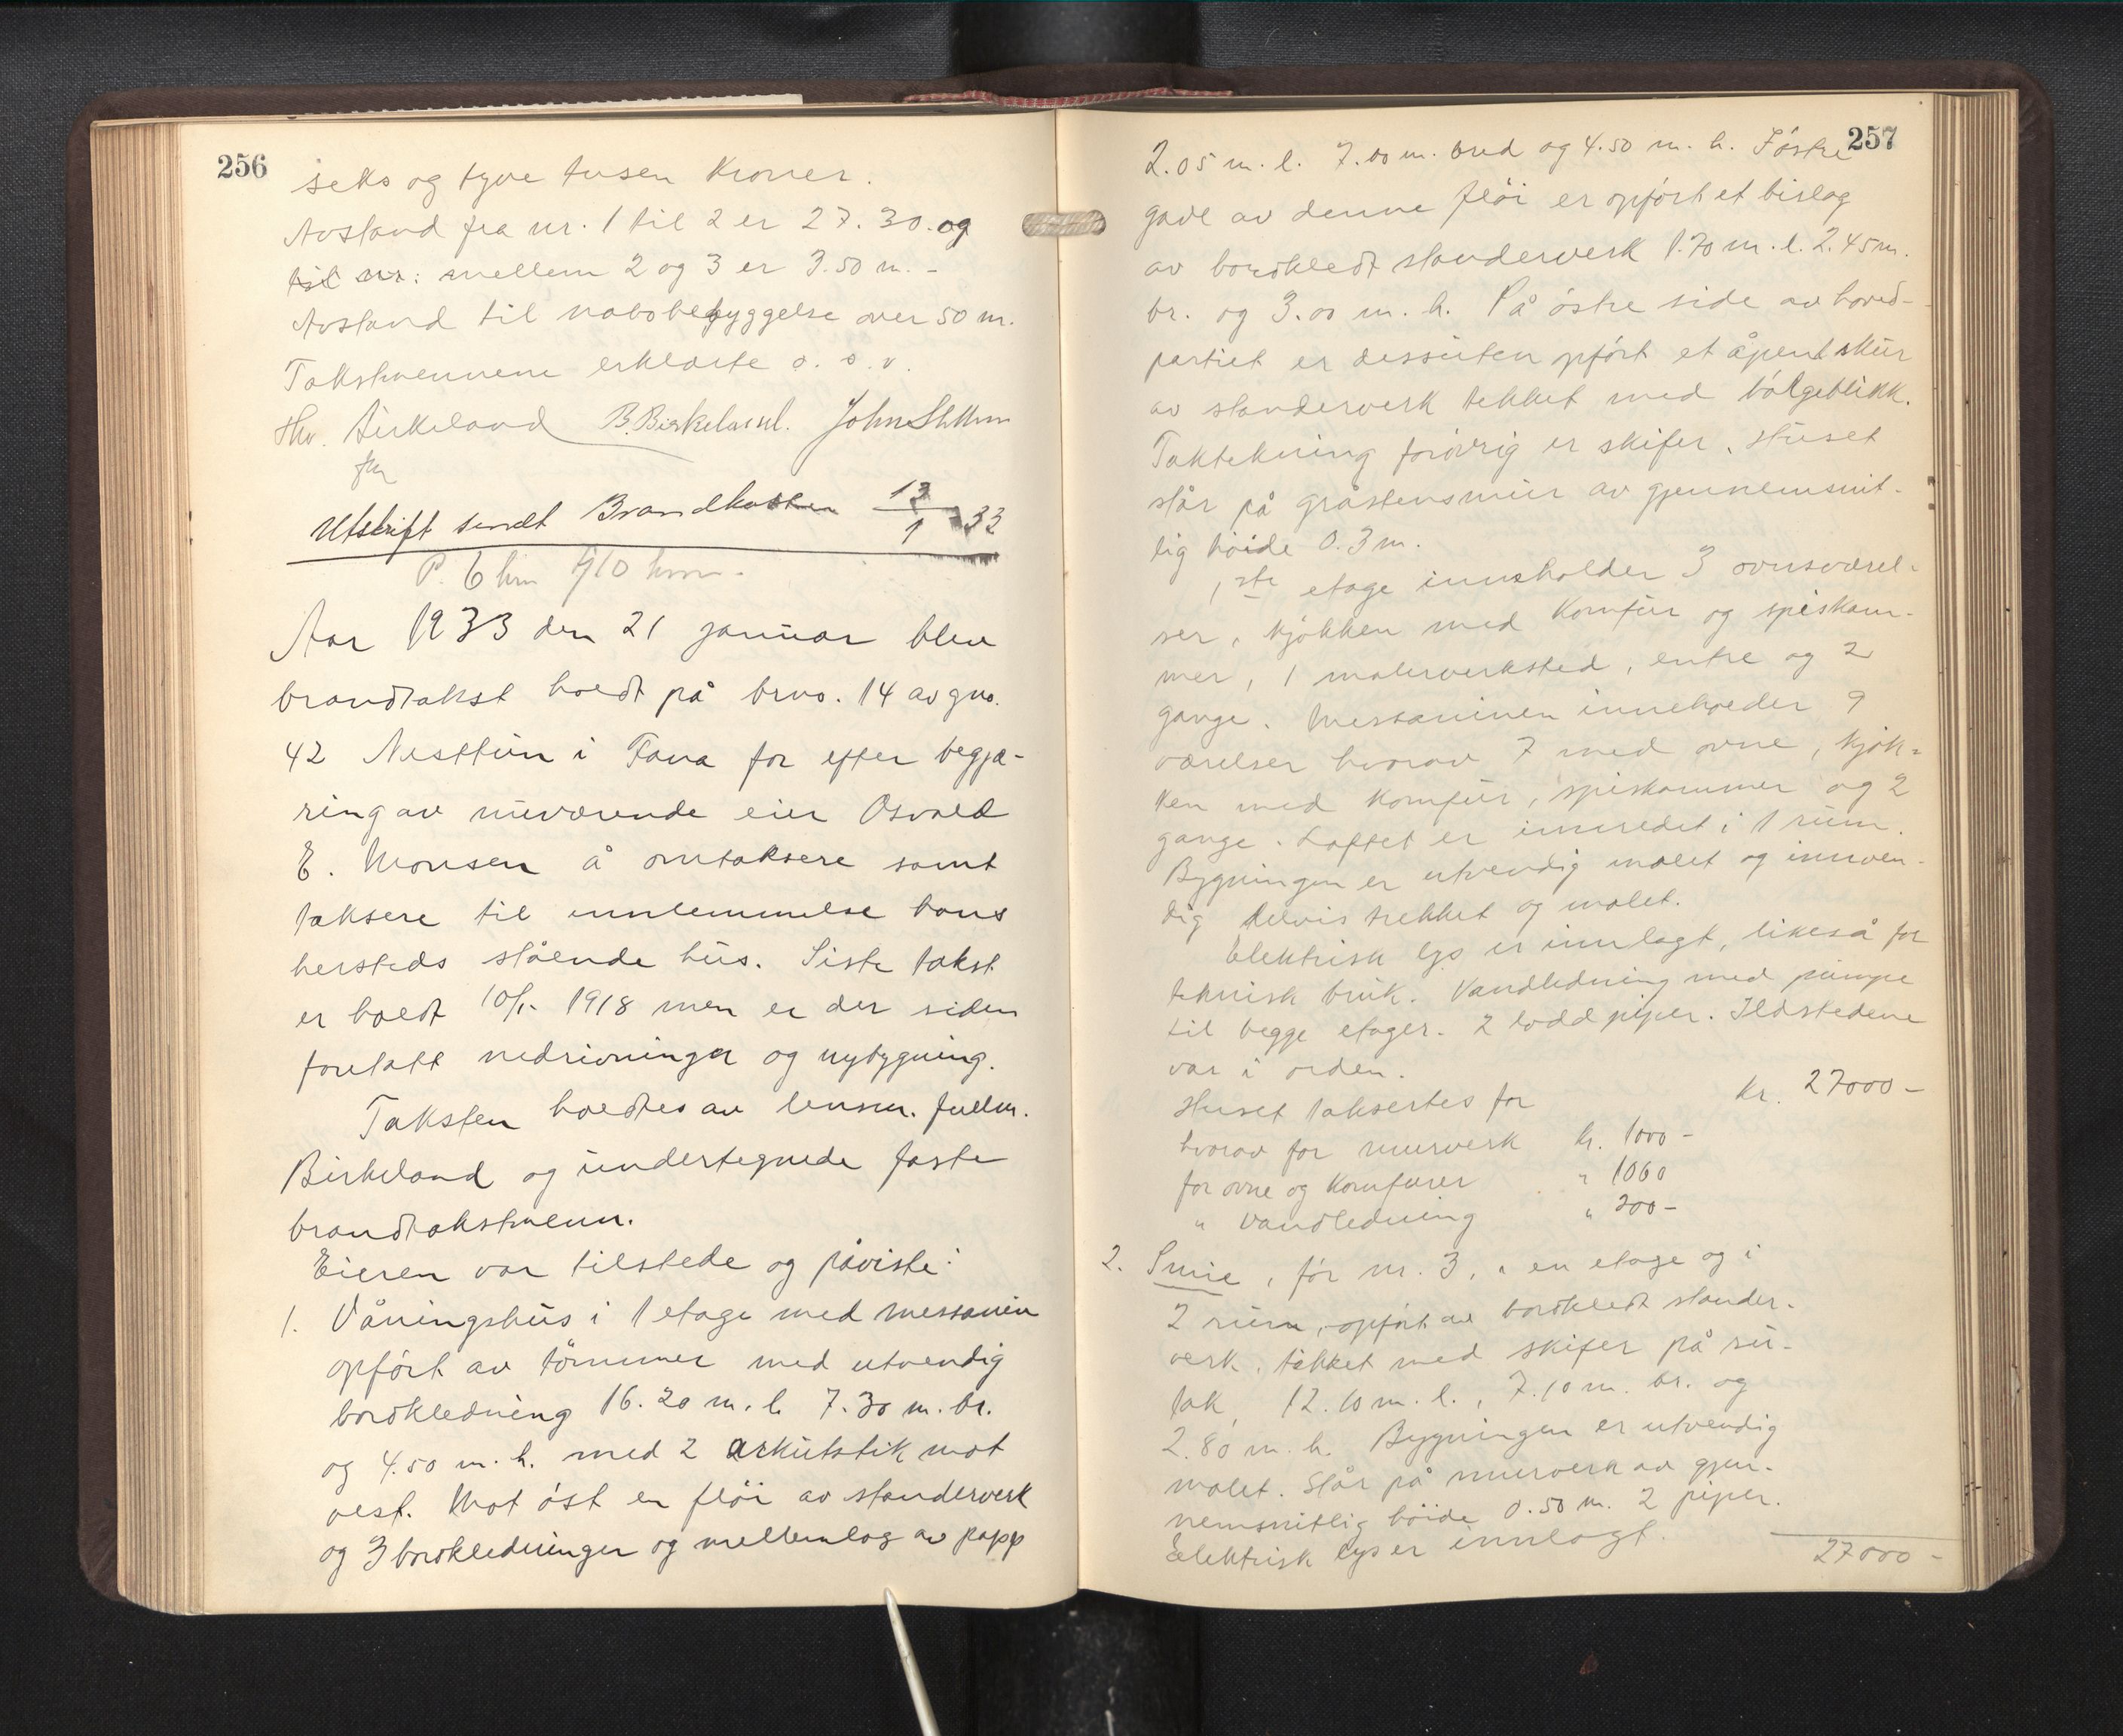 256
seks og tyve tusen Kroner.
Avstand fra nr. 1 til 2 er 27.30. og
til nr: mellem 2 og 3 er 3.50 m. -
Avstand til nabobebyggelse over 50 m.
Takstmennene erklærte o. s. v.
Hv. Birkeland B. Birkeland.
fm
Utskrift sendt Brandkassen 13/1 33
P. 6 km
Aar 1933 den 21 januar blev
brandtakst holdt på brno. 14 av gno.
42 Nesttun i Fana for efter begjæ-
ring av nuværende eier Osvald
E. Monsen å omtaksere samt
taksere til innlemmelse hans
hersteds stående hus. Siste takst
er holdt 10/5 1918 men er der siden
foretatt nedrivninger og nybygning.
Taksten holdtes av lensm. fullm.
Birkeland og undertegnede faste
brandtakstmenn.
Eieren var tilstede og påviste:
1. Våningshus i 1 etage med messanin
opført av tømmer med utvendig
bordkledning 16.20 m. l. 7.30 m. br.
og 4.50 m. h. med 2 arkutstik mot
vest. Mot øst en fløi av standerverk
og 3 bordkledninger og mellemlag av papp
257
2.05 m. l. 7.00 m. bred og 4.50 m. h. Østre
gavl av denne fløi er opført et bislag
av bordkledt standerverk 1.70 m. l. 2.45 m.
br. og 3.00 m. h. På østre side av hoved-
partiet er dessuten opført et åpent skur
av standerverk tekket med bølgeblikk.
Taktekning forøvrig er skifer. Huset
står på gråstensmur av gjennemsnit-
lig høide 0.3 m.
1ste etage innholder 3 ovnsværel-
ser, kjøkken med Komfur og spiskam-
mer, 1 malerverksted, entre og 2
gange. Messaninen inneholder 9
værelser hvorav 7 med ovne, kjøk-
ken med komfur, spiskammer og 2
gange. Loftet er innredet i 1 rum.
Bygningen er utvendig malet og innven-
dig delvis trekket og malet.
Elektrisk lys er innlagt, likeså for
teknisk bruk. Vandledning med pumpe
til begge etager. 2 lodd piper. Ildstedene
var i orden.
Huset taksertes for kr. 27000 -
hvorav for murverk kr. 1000 -
for ovne og Komfurer " 1060
" vandledning " 200 -
2. Smie, før nr. 3, i en etage og i
2 rum, opført av bordkledt stander-
verk, tekket med skifer på su-
tak, 12.10 m. l., 7.10 m. br. og
2.80 m. h. Bygningen er utvendig
malet. Står på murverk av gjen-
nemsnitlig høide 0.50 m. 2 piper.
Elektrisk lys er innlagt.
27000 -